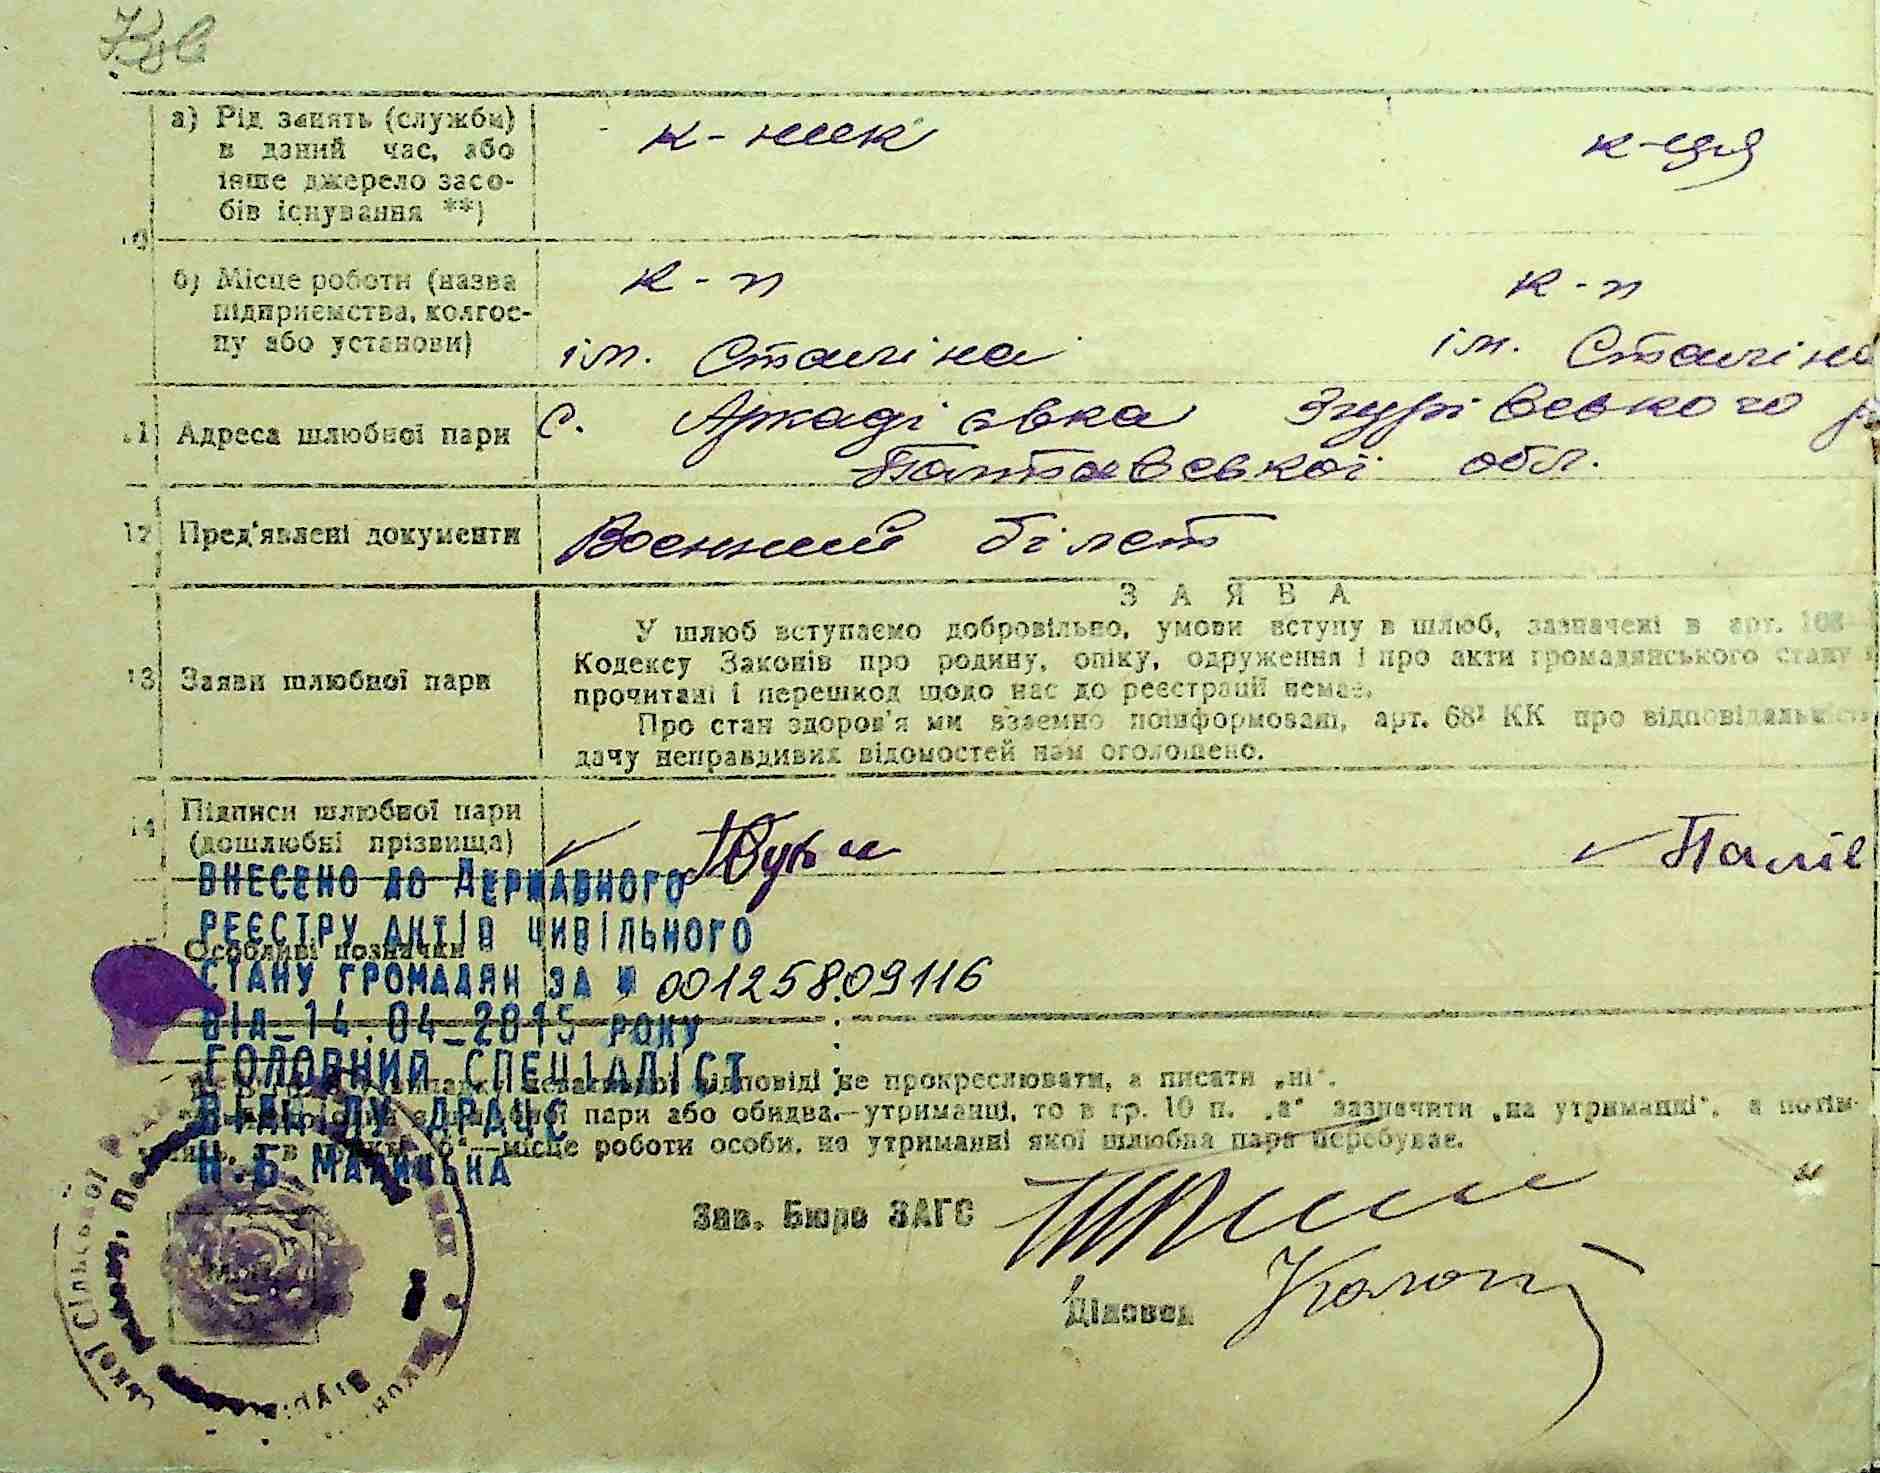 а) Рід занять (служби) к-ник к-ця
в даний час, або
інше джерело засо-
бів існування **)
б) Місце роботи (назва к-п к-п
підприємства, колгос-
пу або установи) ім. Сталіна ім. Сталіна
11 Адреса шлюбної пари с. Аркадіевка Згурівського р
Полтавської обл.
12 Пред'явлені документи Военний білет
З А Я В А
У шлюб вступаємо добровільно, умови вступу в шлюб, зазначені в арт.
Кодексу Законів про родину, опіку, одруження і про акти громадянського стану
13 Заяви шлюбної пари прочитані і перешкод щодо нас до реєстрації немає.
Про стан здоров'я ми взаємно поінформовані, арт. 68¹ КК про відповідальність
дачу неправдивих відомостей нам оголошено.
14 Підписи шлюбної пари
(дошлюбні прізвища) Палів
ВНЕСЕНО ДО ДЕРЖАВНОГО
РЕЄСТРУ АКТІВ ЦИВІЛЬНОГО
Особливі позначки
СТАНУ ГРОМАДЯН ЗА № 00125809116
ВІД 14.04 2015 РОКУ
ГОЛОВНИЙ СПЕЦІАЛІСТ
відповіді не прокреслювати, а писати „ні".
ВІДДІЛУ ДРАЦС
пари або обидва—утриманці, то в гр. 10 п. „а" зазначити „на утриманні", а потім
місце роботи особи, на утриманні якої шлюбна пара перебуває.
Н.Б.
Зав. Бюро ЗАГС
Діловод